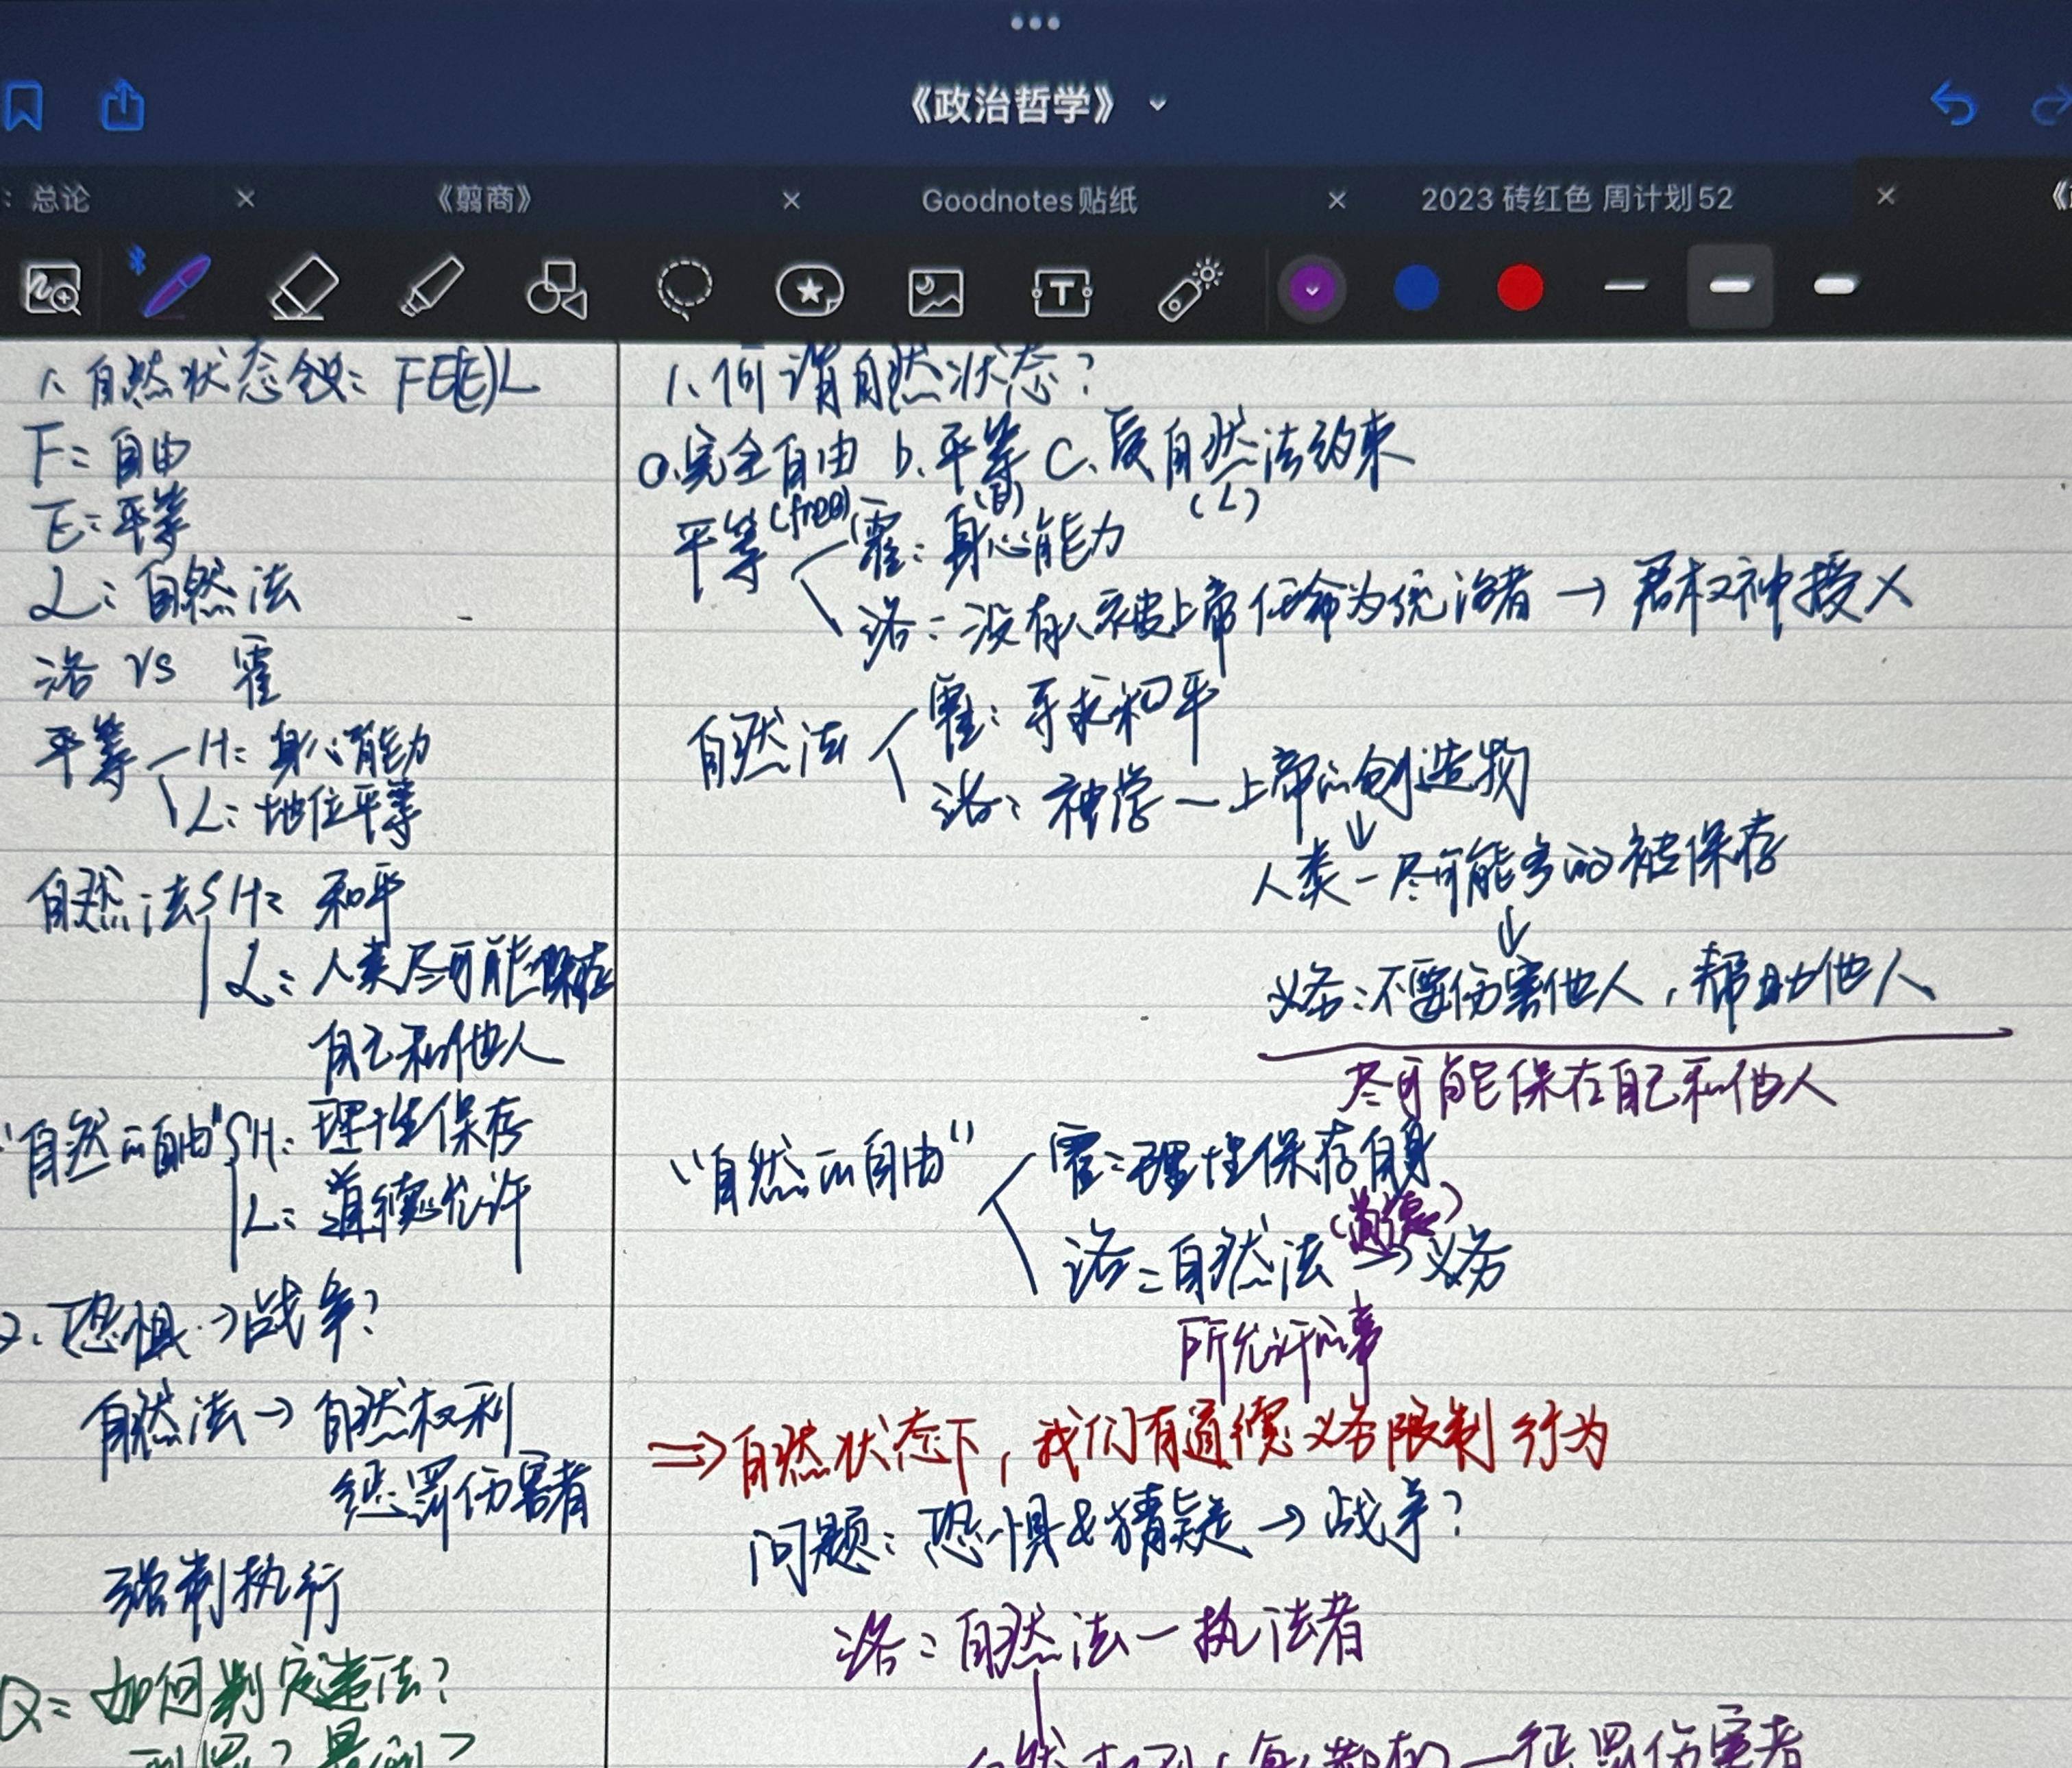 《政治哲学》
：总论
《翦商》
Goodnotes贴纸
2023 砖红色 周计划52
1、自然状态 FE(E)L
F=自由
E=平等
L：自然法
洛 vs 霍
平等 H：身心能力
L：地位平等
自然法 H： 和平
L：人类尽可能保存
自己和他人
"自然的自由" H：理性保存
L：道德允许
2、恐惧→战争？
自然法→自然权利
惩罚伤害者
强制执行
Q= 如何判定违法？
1、何谓自然状态？
a.完全自由 b.平等 c.受自然法约束
(free) (E) (L)
平等 霍：身心能力
洛：没有人被上帝任命为统治者→君权神授×
自然法 霍：寻求和平
洛：神学—上帝的创造物
↓
人类—尽可能多的被保存
↓
义务：不要伤害他人，帮助他人
尽可能保存自己和他人
"自然的自由" 霍：理性保存自身
(道德)
洛：自然法→义务
所允许的事
⇒自然状态下，我们有道德义务限制行为
问题：恐惧&猜疑→战争？
洛：自然法—执法者
—惩罚伤害者